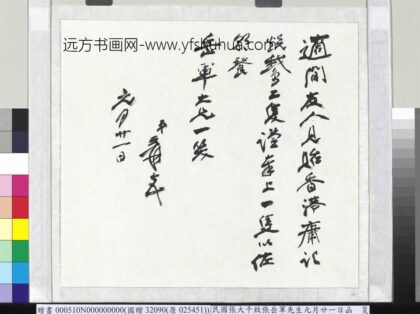 远方书画网-www.yfshuhua.com
適間友人見貽香港庸記
燒鵞二隻謹奉上一隻以佐
餐
岳軍大兄一笑
弟爰
元月廿一日
贈書 000510N000000000(國贈 32090(原 025451)) 民國張大千致張岳軍先生元月廿一日函